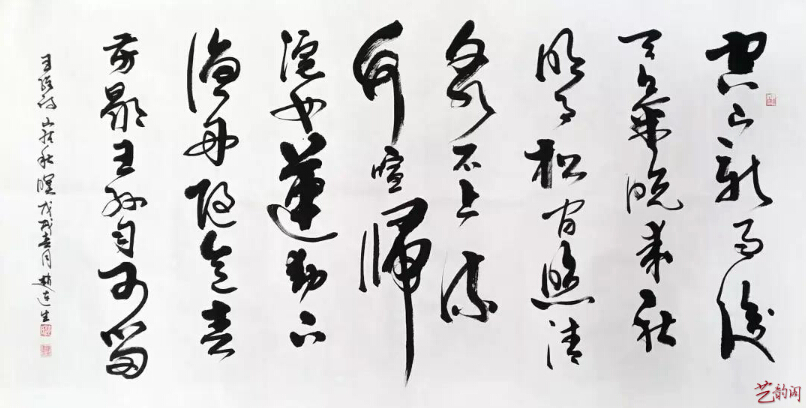 空山新雨後
天氣晚来秋
明月松间照清
泉石上流
竹喧歸
浣女蓮動下
漁舟随意春
芳歇王孙自可留
王维诗山居秋暝戊戌春月趙生
艺韵阁